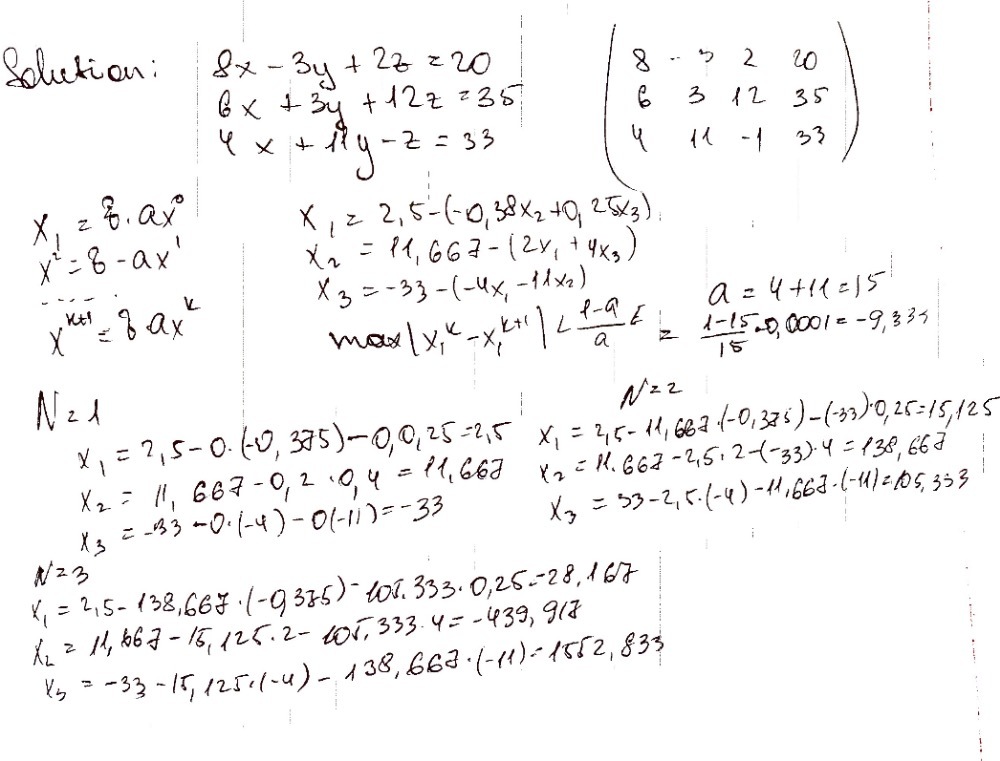 Solution:
8x - 3y + 2z = 20
6x + 3y + 12z = 35
4x + 11y - z = 33
8 -3 2 20
6 3 12 35
4 11 -1 33
x₁ = b · ax⁰
x² = b - ax¹
-----
xᵏ⁺¹ = b · axᵏ
x₁ = 2,5-(-0,38x₂+0,25x₃)
x₂ = 11,667-(2x₁ + 4x₃)
x₃ = -33-(-4x₁-11x₂)
a = 4+11=15
max|x₁ᵏ - x₁ᵏ⁺¹| < (1-a)/a ε = (1-15)/15 · 0,0001 = -9,33
N=1
x₁ = 2,5-0·(-0,375)-0,0,25=2,5
x₂ = 11,667-0,2·0,4 = 11,667
x₃ = -33-0·(-4)-0(-11)=-33
N=2
x₁ = 2,5-11,667·(-0,375)-(-33)·0,25=15,125
x₂ = 11.667-2,5·2-(-33)·4=138,667
x₃ = 33-2,5·(-4)-11,667·(-11)=105,333
N=3
x₁ = 2,5-138,667·(-0,375)-105.333·0,25=28,167
x₂ = 11,667-15,125·2-105,333·4=-439,917
x₃ = -33-15,125·(-4)-138,667·(-11)=1552,833